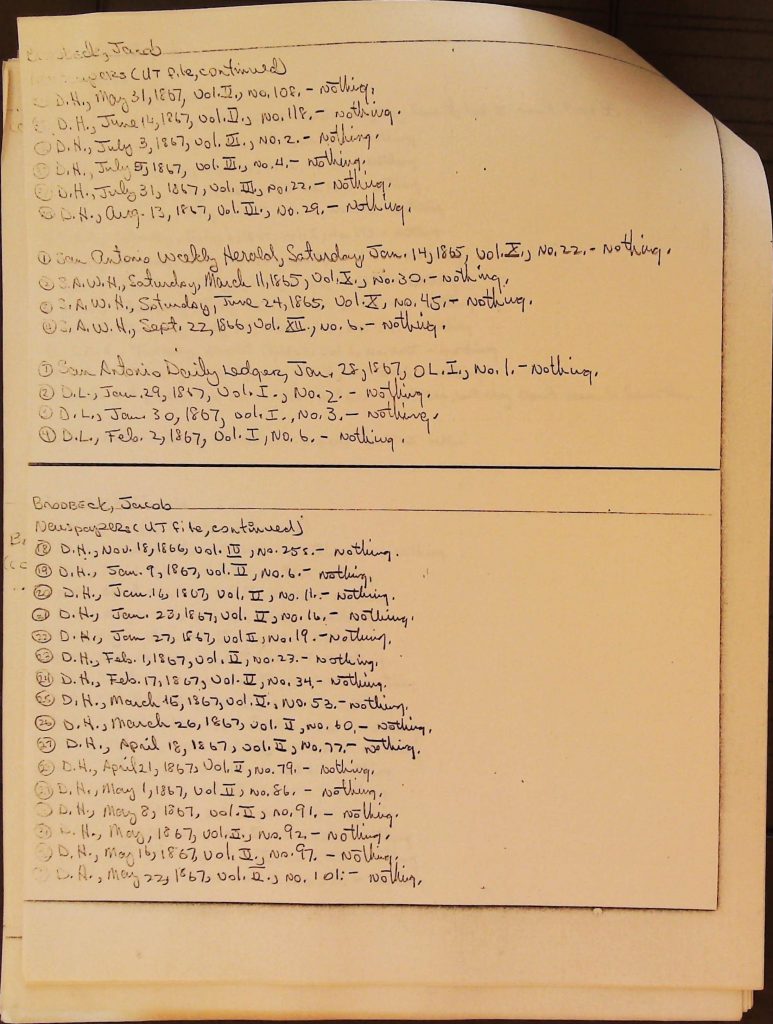 Brodbeck, Jacob
Newspapers (UT file, continued)
D.H., May 31, 1867, Vol. II, No. 108. - Nothing.
D.H., June 14, 1867, Vol. II, No. 118. - Nothing.
D.H., July 3, 1867, Vol. III, No. 2. - Nothing.
D.H., July 5, 1867, Vol. III, No. 4. - Nothing.
D.H., July 31, 1867, Vol. III, No. 22. - Nothing.
D.H., Aug. 13, 1867, Vol. III, No. 29. - Nothing.
① San Antonio Weekly Herald, Saturday, Jan. 14, 1865, Vol. X, No. 22. - Nothing.
② S.A.W.H., Saturday, March 11, 1865, Vol. X, No. 30. - Nothing.
③ S.A.W.H., Saturday, June 24, 1865, Vol. X, No. 45. - Nothing.
④ S.A.W.H., Sept. 22, 1866, Vol. XII, No. 6. - Nothing.
① San Antonio Daily Ledger, Jan. 28, 1867, OL. I., No. 1. - Nothing.
② D.L., Jan. 29, 1867, Vol. I., No. 2. - Nothing.
③ D.L., Jan. 30, 1867, Vol. I., No. 3. - Nothing.
④ D.L., Feb. 2, 1867, Vol. I, No. 6. - Nothing.
Brodbeck, Jacob
Newspapers (UT file, continued)
⑱ D.H., Nov. 18, 1866, Vol. IV, No. 255. - Nothing.
⑲ D.H., Jan. 9, 1867, Vol. II, No. 6. - Nothing.
⑳ D.H., Jan. 16, 1867, Vol. II, No. 11. - Nothing.
㉑ D.H., Jan. 23, 1867, Vol. II, No. 16. - Nothing.
㉒ D.H., Jan 27, 1867, Vol II, No. 19. - Nothing.
㉓ D.H., Feb. 1, 1867, Vol. II, No. 23. - Nothing.
㉔ D.H., Feb. 17, 1867, Vol. II, No. 34. - Nothing.
㉕ D.H., March 15, 1867, Vol. II, No. 53. - Nothing.
㉖ D.H., March 26, 1867, Vol. II, No. 60. - Nothing.
㉗ D.H., April 18, 1867, Vol. II, No. 77. - Nothing.
D.H., April 21, 1867, Vol. II, No. 79. - Nothing.
D.H., May 1, 1867, Vol II, No. 86. - Nothing.
D.H., May 8, 1867, Vol. II, No. 91. - Nothing.
D.H., May, 1867, Vol. II, No. 92. - Nothing.
D.H., May 16, 1867, Vol. II, No. 97. - Nothing.
D.H., May 22, 1867, Vol. II, No. 101. - Nothing.